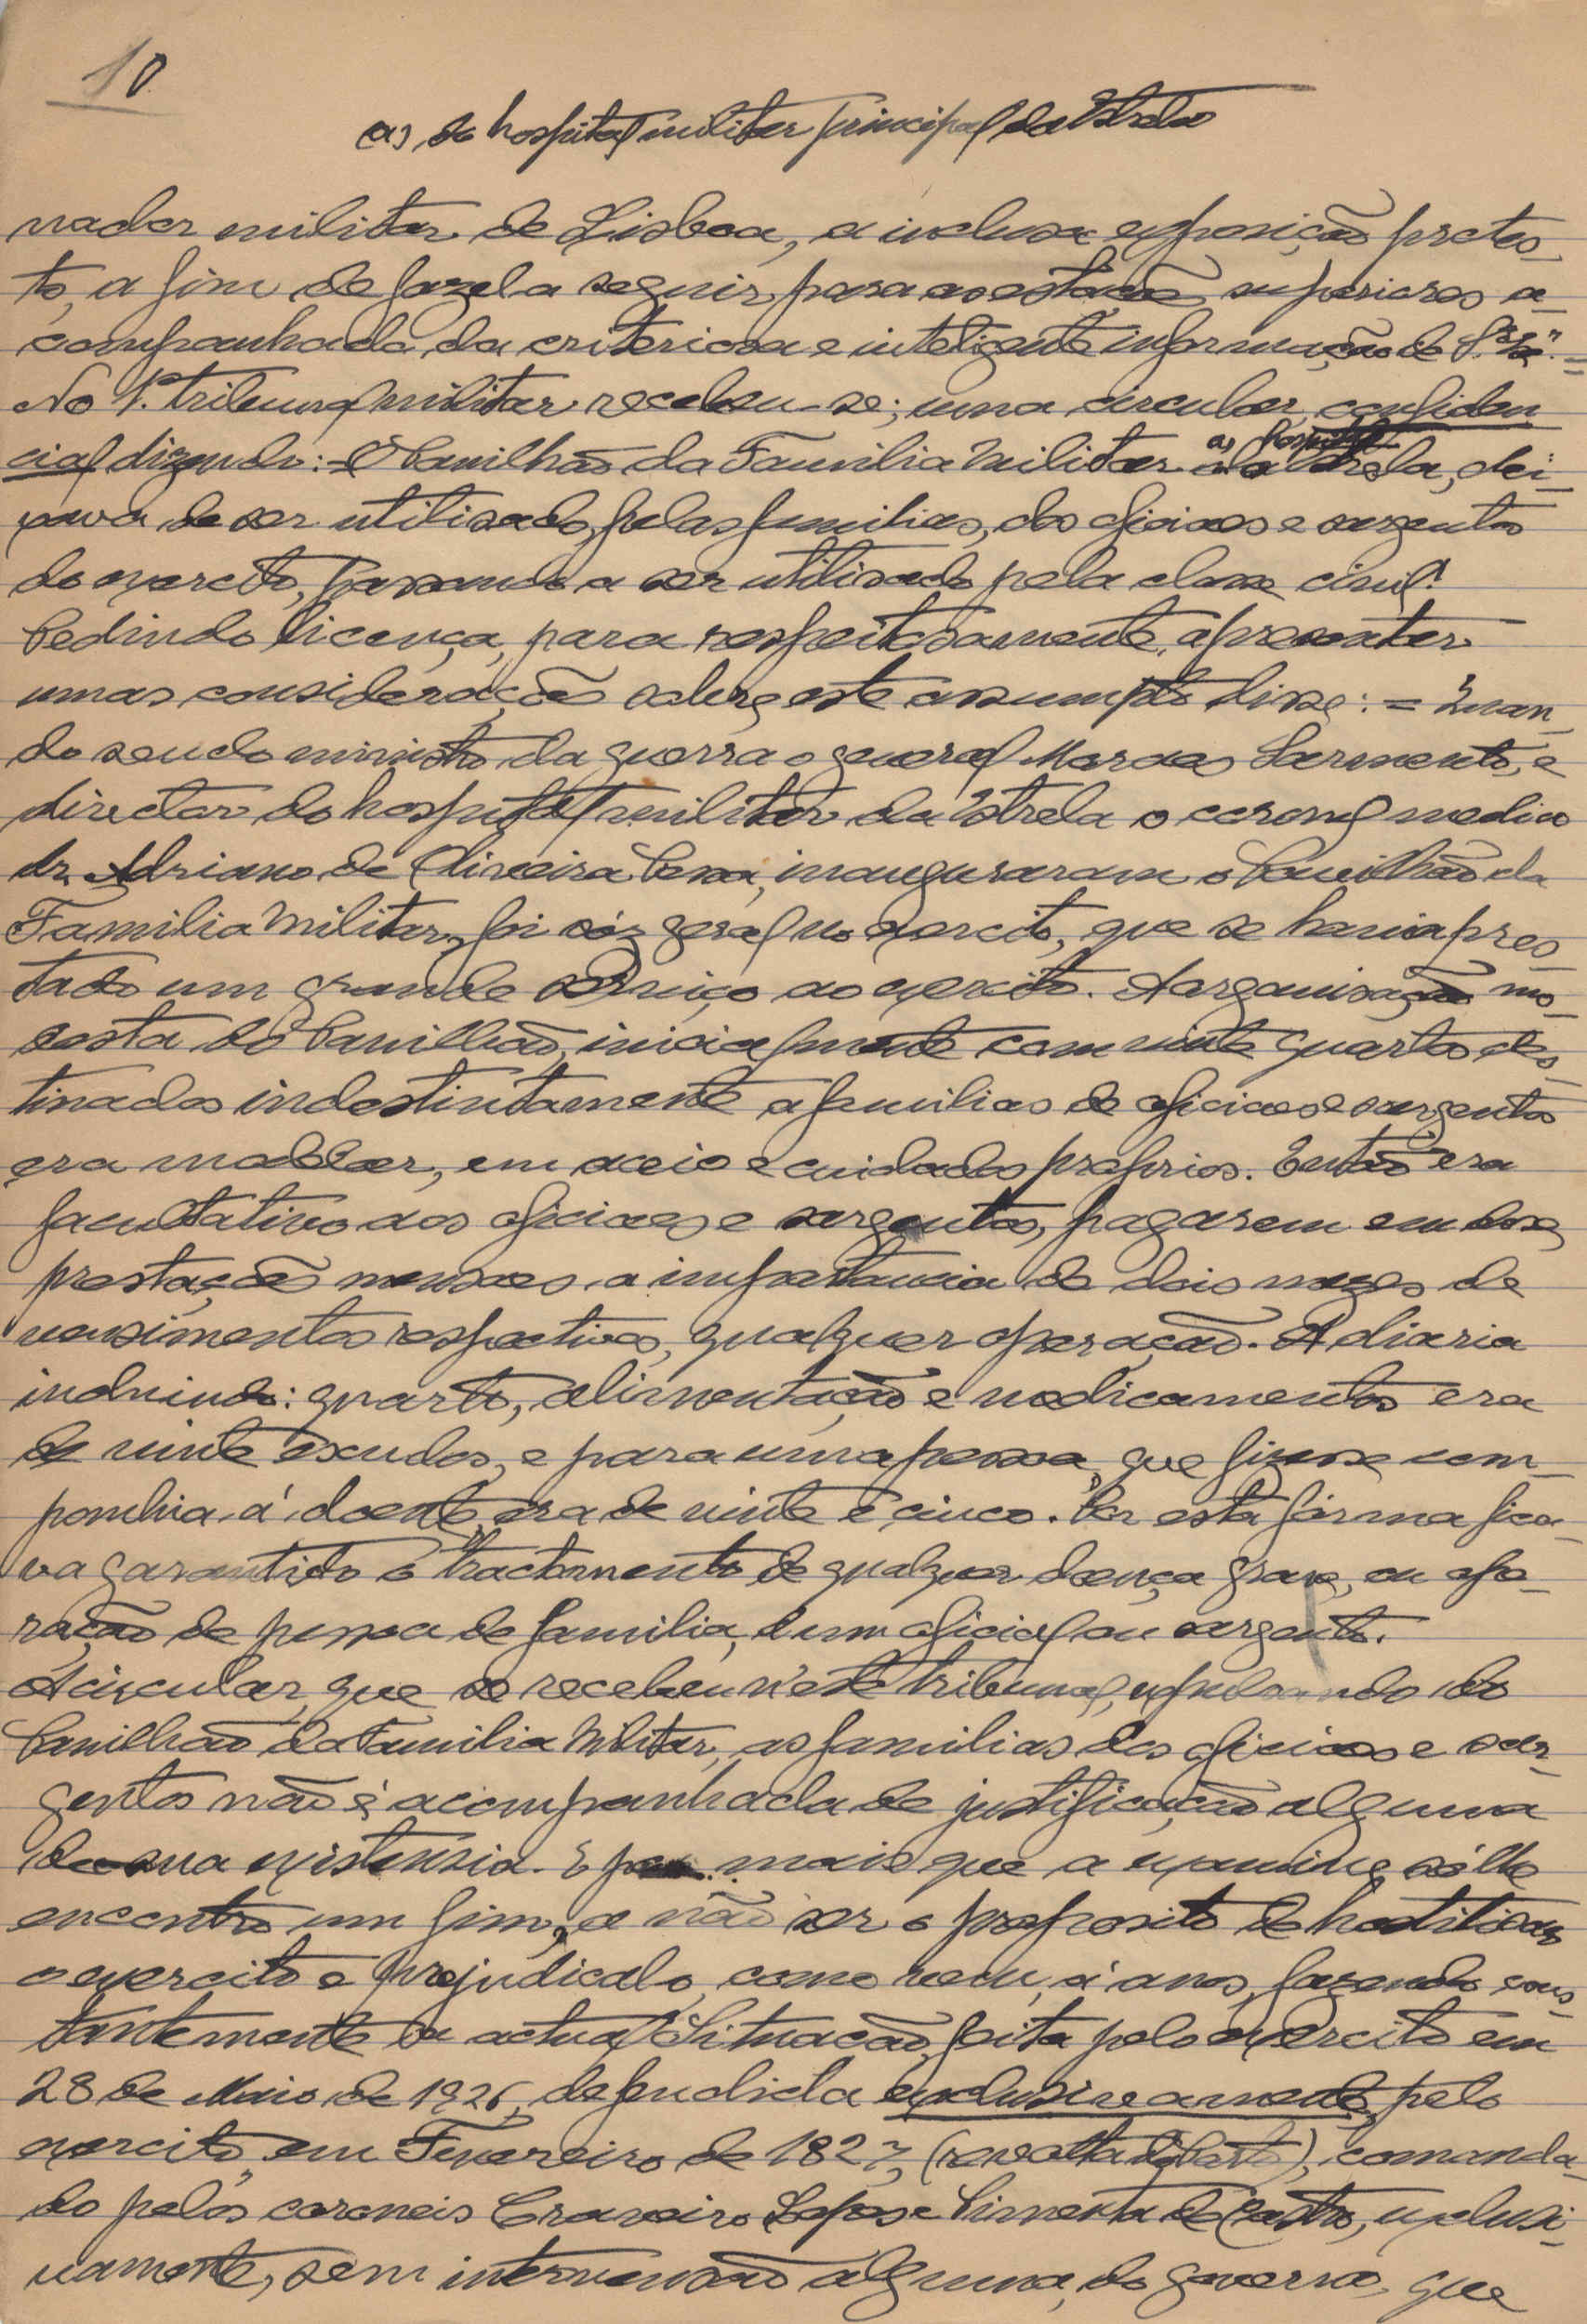 10
a) do hospital militar principal da Estrela
nador militar de Lisboa, a inclusa exposição protes_
to, a fim de fazel-a seguir para as estações superiores a_
companhada da criteriosa e inteligente informação de S. Exª". =
No 1º. tribunal militar recebeu-se; uma circular, confiden_
cial dizendo: = O Pavilhão da Familia Militar a) da Estrela, dei_
xava de ser utilisado, pelas familias, dos oficiaes e sargentos
do exercito, passando a ser utilisado pela classe civil!
Pedindo licença, para respeitosamente, apresentar
umas considerações sobre este assumpto disse: = Quan_
do sendo ministro da guerra o general Moraes Sarmento, e
director do hospital militar da Estrela o coronel medico
dr. Adriano de Oliveira Pessa, inauguraram o Pavilhão da
Familia Militar, foi vóz geral no exercito, que se havia pres_
tado um grande serviço ao exercito. A organisação mo_
desta do Pavilhão, inicialmente com vinte quartos des_
tinados indestintamente a familias de oficiaes e sargentos
era modelar, em aceio e cuidados proprios. Então era
facultativo aos oficiaes e sargentos, pagarem em doze
prestações mensaes, a importancia de dois mezes de
vensimentos respectivos, qualquer operação. A diaria
incluindo: quarto, alimentação e medicamentos era
de vinte escudos, e para uma pessoa, que fizesse com_
panhia, á doente, era de vinte e cinco. Por esta fórma fica_
va garantido o tractamento de qualquer doença grave, ou ope_
ração de pessoa de familia, d'um oficial ou sargento.
A circular, que se recebeu n'este tribunal, expulsando do
Pavilhão da Familia Militar, as familias dos oficiaes e sar_
gentos não é acompanhada de justificação alguma
da sua existensia. E por mais que a examine, só lhe
encontro um fim, a não ser o proposito de hostilisar
o exercito e prejudical-o, como vem, á anos, fazendo cons_
tantemente a actual Situação, feita pelo exercito em
28 de Maio de 1926, defendida exclusivamente, pelo
exercito, em Fevereiro de 1827, (revolta do Porto), comanda_
do pelos coroneis Craveiro Lopes e Pimenta de Castro, exclusi_
vamente, sem intervensão alguma, do governo, que